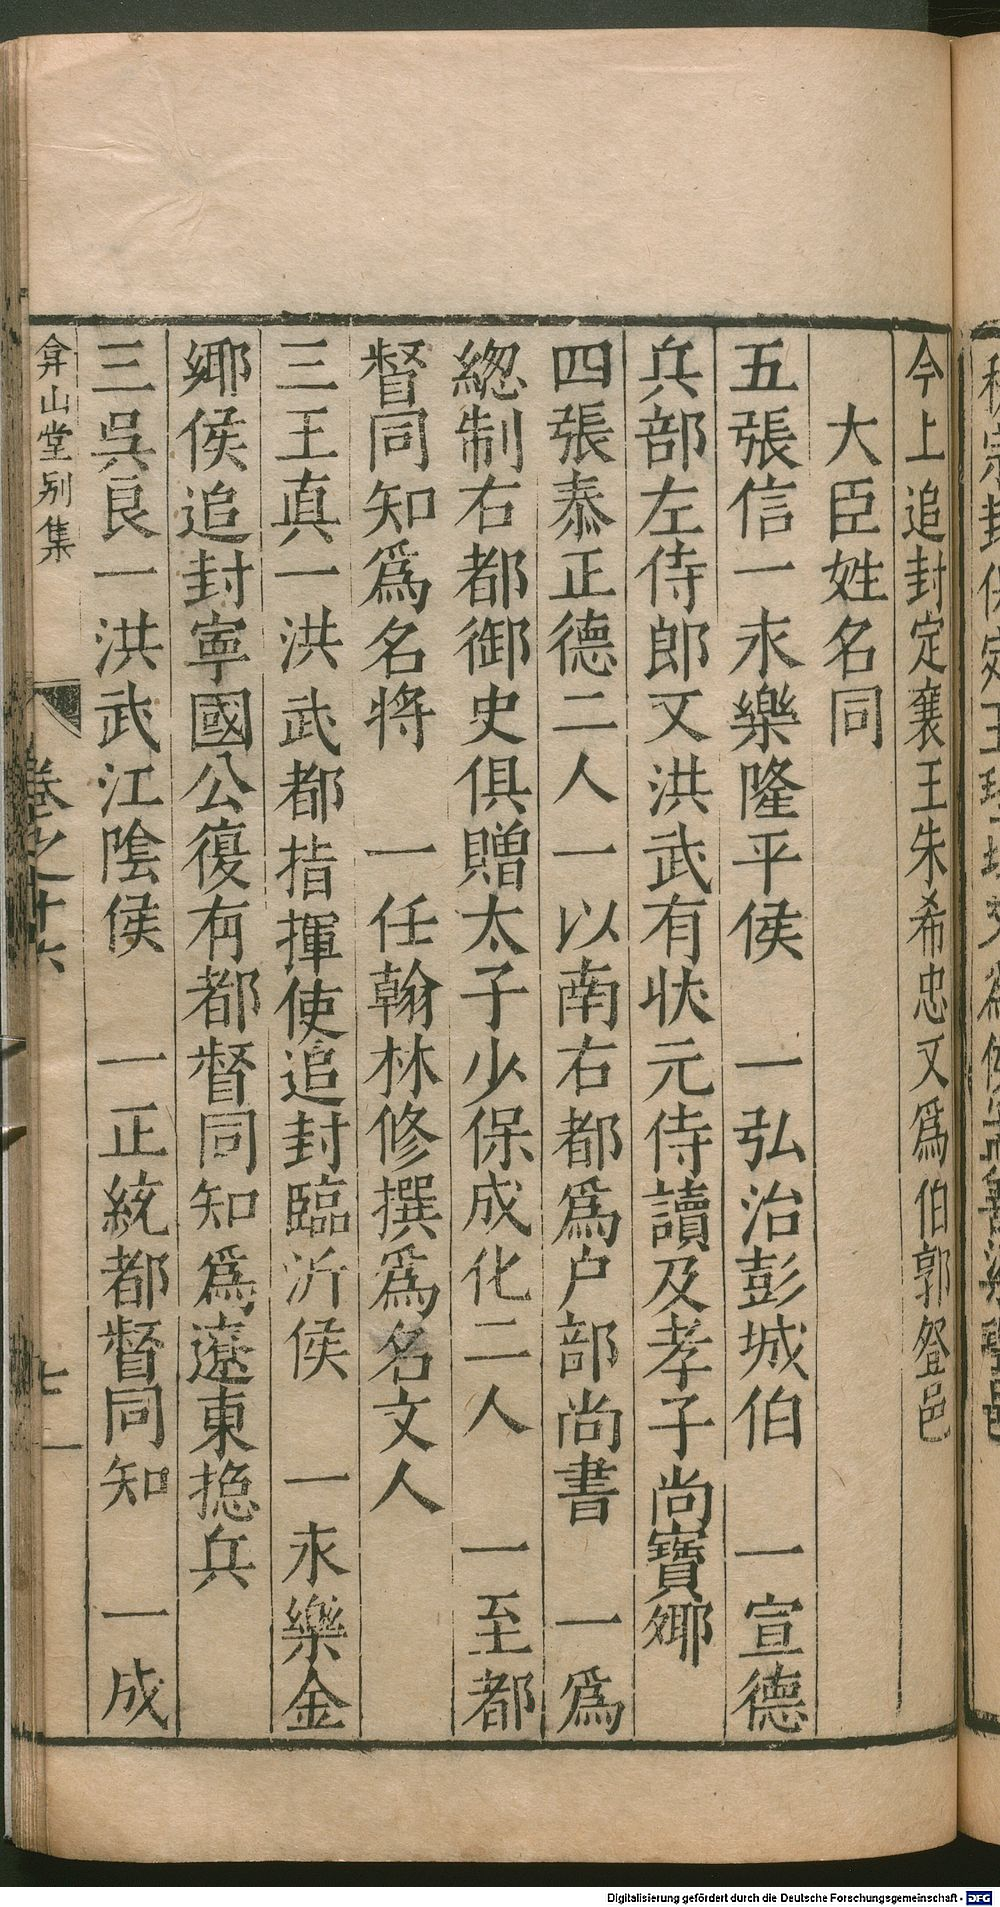 今上追封定襄王朱希忠又爲伯郭登邑
大臣姓名同
五張信一永樂隆平侯 一弘治彭城伯 一宣德
兵部左侍郎又洪武有狀元侍讀及孝子尚寶卿
四張泰正德二人一以南右都爲户部尚書 一爲
緫制右都御史俱贈太子少保成化二人 一至都
督同知爲名將 一任翰林修撰爲名文人
三王真一洪武都指揮使追封臨沂侯 一永樂金
鄉侯追封寧國公復有都督同知爲遼東捴兵
三吳良一洪武江陰侯 一正統都督同知 一成
弇山堂别集
卷之十六
七
Digitalisierung gefördert durch die Deutsche Forschungsgemeinschaft - DFG